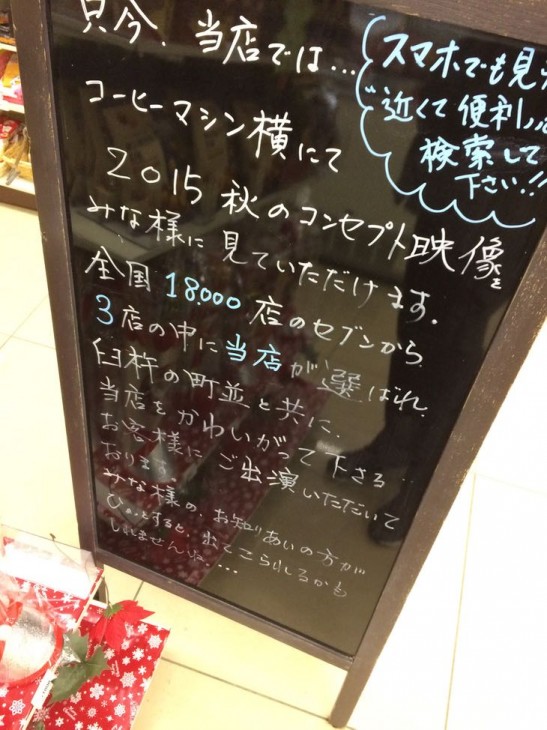 只今、当店では…
コーヒーマシン横にて
2015 秋のコンセプト映像を
みな様に見ていただけます.
全国18.000店のセブンから
3店の中に当店が選ばれ.
臼杵の町並と共に.
当店をかわいがって下さる
お客様にご出演いただいて
おります.
みな様の、お知りあいの方が
ひょっとすると、出てこられしるかも
しれませんね…
スマホでも見
近くて便利
検索して
下さい!!